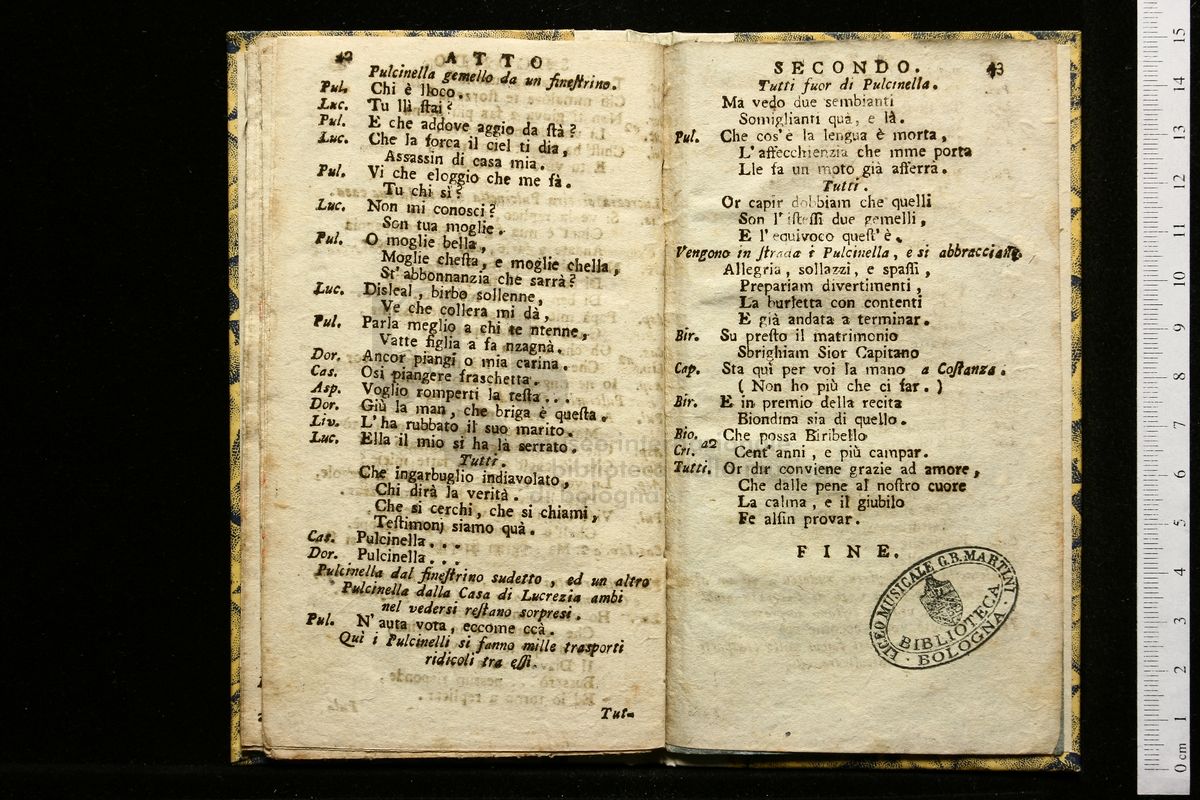 42 ATTO
Pulcinella gemello da un fineſtrino.
Pul. Chi è lloco.
Luc. Tu llà ſtai?
Pul. E che addove aggio da ſtà?
Luc. Che la forca il ciel ti dia,
Aſſaſſin di caſa mia.
Pul. Vi che eloggio che me fà.
Tu chi si?
Luc. Non mi conosci?
Son tua moglie.
Pul. O moglie bella,
Moglie cheſta, e moglie chella,
St' abbonnanzia che sarrà?
Luc. Disleal, birbo sollenne,
Ve che collera mi dà,
Pul. Parla meglio a chi te ntenne,
Vatte figlia a fa nzagnà.
Dor. Ancor piangi o mia carina.
Cas. Osi piangere fraschetta.
Asp. Voglio romperti la teſta...
Dor. Giù la man, che briga è queſta.
Liv. L' ha rubbato il suo marito.
Luc. Ella il mio si ha là serrato.
Tutti.
Che ingarbuglio indiavolato,
Chi dirà la verità.
Che si cerchi, che si chiami,
Teſtimonj siamo quà.
Cas. Pulcinella...
Dor. Pulcinella...
Pulcinella dal fineſtrino sudetto, ed un altro
Pulcinella dalla Casa di Lucrezia ambi
nel vedersi reſtano sorpresi.
Pul. N' auta vota, eccome ccà.
Quì i Pulcinelli si fanno mille trasporti
ridicoli tra eſſi.
Tut-
SECONDO. 43
Tutti fuor di Pulcinella.
Ma vedo due sembianti
Somiglianti quà, e là.
Pul. Che cos' è la lengua è morta,
L' affecchienzia che mme porta
Lle fa un moto già afferra.
Tutti.
Or capir dobbiam che quelli
Son l' iſteſſi due gemelli,
E l' equivoco queſt' è.
Vengono in ſtrada i Pulcinella, e si abbracciano.
Allegria, sollazzi, e spaſſi,
Prepariam divertimenti,
La burletta con contenti
E già andata a terminar.
Bir. Su preſto il matrimonio
Sbrighiam Sior Capitano
Cap. Sta quì per voi la mano a Coſtanza.
( Non ho più che ci far. )
Bir. E in premio della recita
Biondina sia di quello.
Bio. Che possa Biribello
Cri. a2 Cent' anni, e più campar.
Tutti. Or dir conviene grazie ad amore,
Che dalle pene al noſtro cuore
La calma, e il giubilo
Fe alfin provar.
FINE.
LICEO MUSICALE G.B. MARTINI
BIBLIOTECA
· BOLOGNA ·